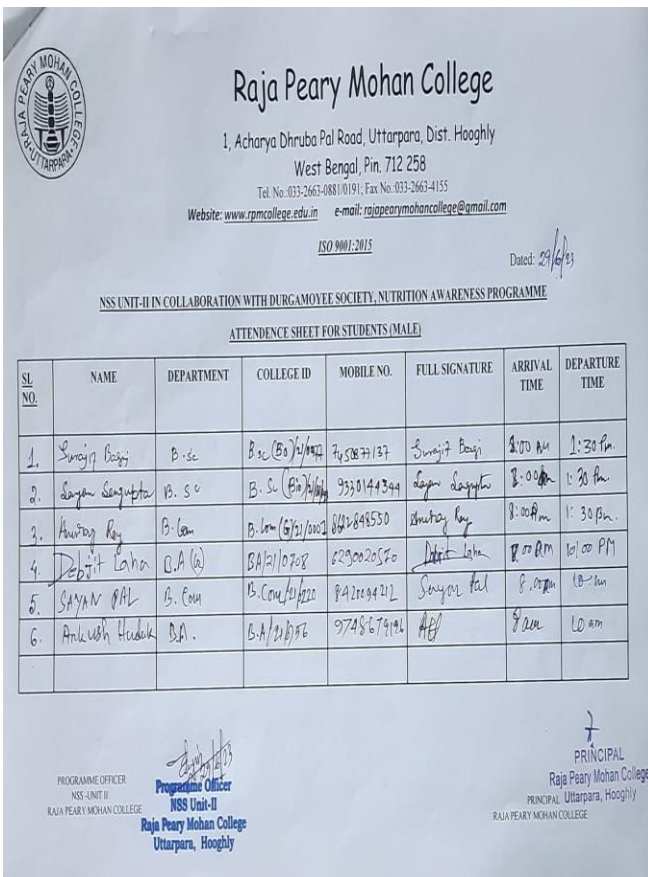 RAJA PEARY MOHAN COLLEGE
UTTARPARA
Raja Peary Mohan College
1, Acharya Dhruba Pal Road, Uttarpara, Dist. Hooghly
West Bengal, Pin. 712 258
Tel. No.:033-2663-0881/0191; Fax No.:033-2663-4155
Website: www.rpmcollege.edu.in e-mail: rajapearymohancollege@gmail.com
ISO 9001:2015
Dated: 29/6/23
NSS UNIT-II IN COLLABORATION WITH DURGAMOYEE SOCIETY, NUTRITION AWARENESS PROGRAMME
ATTENDENCE SHEET FOR STUDENTS (MALE)
SL NO. NAME DEPARTMENT COLLEGE ID MOBILE NO. FULL SIGNATURE ARRIVAL TIME DEPARTURE TIME
1. Surajit Bagi B.sc 7450877137 Surajit Bagi 8:00 AM 1:30 Pm.
2. Sayan Sengupta B. Sc 9330144344 Sayan Sengupta 8:00 1:30 Pm.
3. Anurag Roy B.Com B.Com(G)/21/0002 8622848550 Anurag Roy 8:00 Am 1:30 Pm.
4. Debjit Laha B.A (G) BA/21/0708 6290020570 Debjit Laha 8.00 AM 10:00 PM
5. SAYAN PAL B. Com B.Com/21/220 8421094212 Sayan Pal 8.00
6. Ankush B.A. 9748679196 8 am 10 am
29/6/23
PROGRAMME OFFICER
NSS -UNIT II
RAJA PEARY MOHAN COLLEGE
Programme Officer
NSS Unit-II
Raja Peary Mohan College
Uttarpara, Hooghly
PRINCIPAL
Raja Peary Mohan College
Uttarpara, Hooghly
PRINCIPAL
RAJA PEARY MOHAN COLLEGE